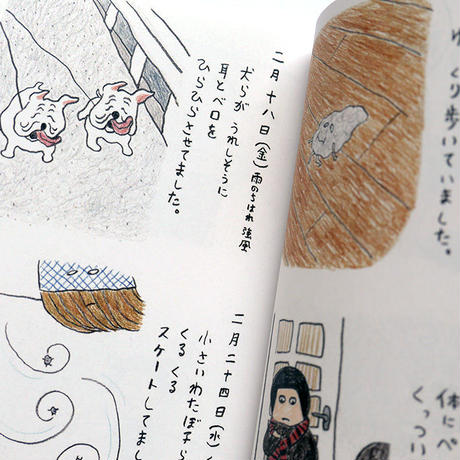 二月十八日(金)雨のちはれ強風
犬らが うれしそうに
耳とベロを
ひらひらさせてました。
二月二十四日(水)
小さいわたぼ子ら
くるくる
スケートしてまし
くり歩いていました。
体にペ
くっつい